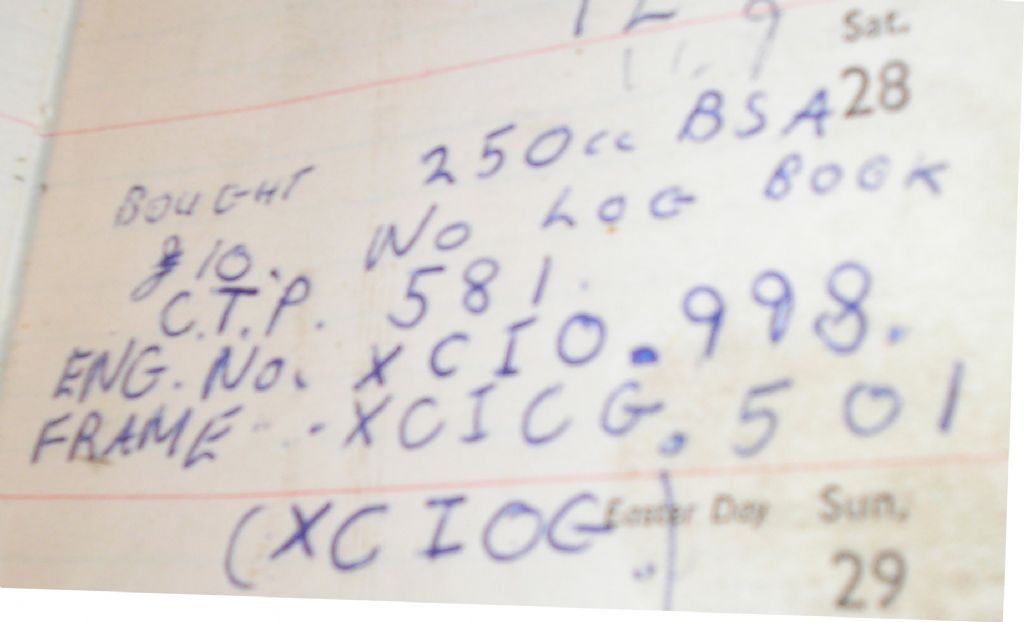 Sat.
28
BOUGHT 250cc BSA
£10. NO LOG BOOK
C.T.P. 581.
ENG. No. XCIO.998.
FRAME - - XCICG.501
(XCIOG.)
Easter Day Sun.
29